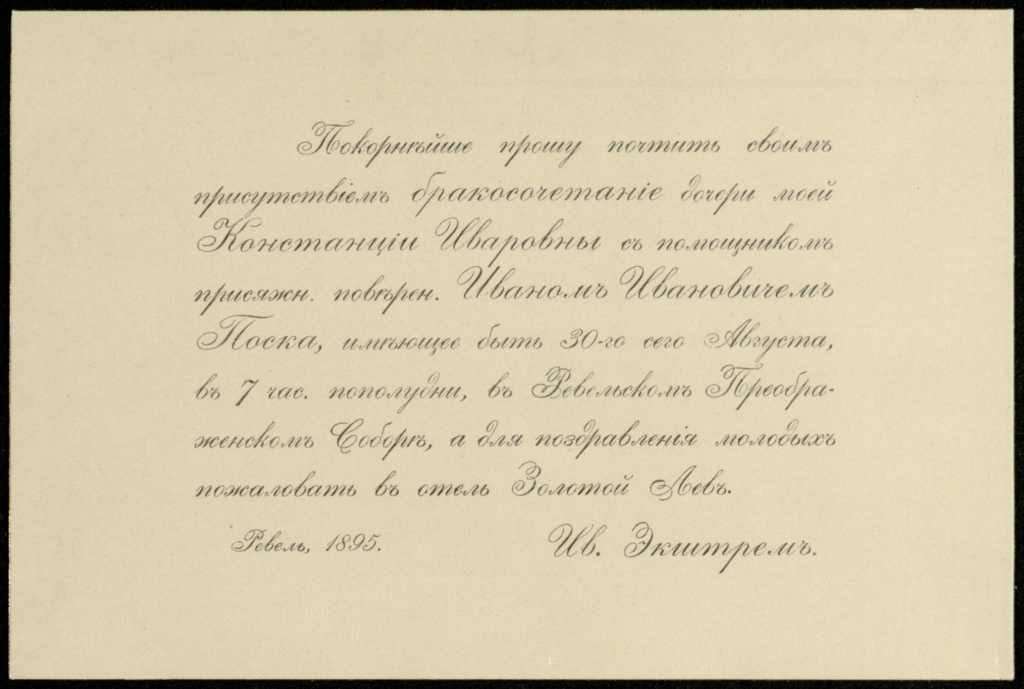 Покорнѣйше прошу почтить своимъ
присутствіемъ бракосочетаніе дочери моей
Констанціи Иваровны съ помощникомъ
присяжн. повѣрен. Иваномъ Ивановичемъ
Поска, имѣющее быть 30-го сего Августа,
въ 7 час. пополудни, въ Ревельскомъ Преобра-
женскомъ Соборѣ, а для поздравленія молодыхъ
пожаловать въ отель Золотой Левъ.
Ревель, 1895. Ив. Экштремъ.